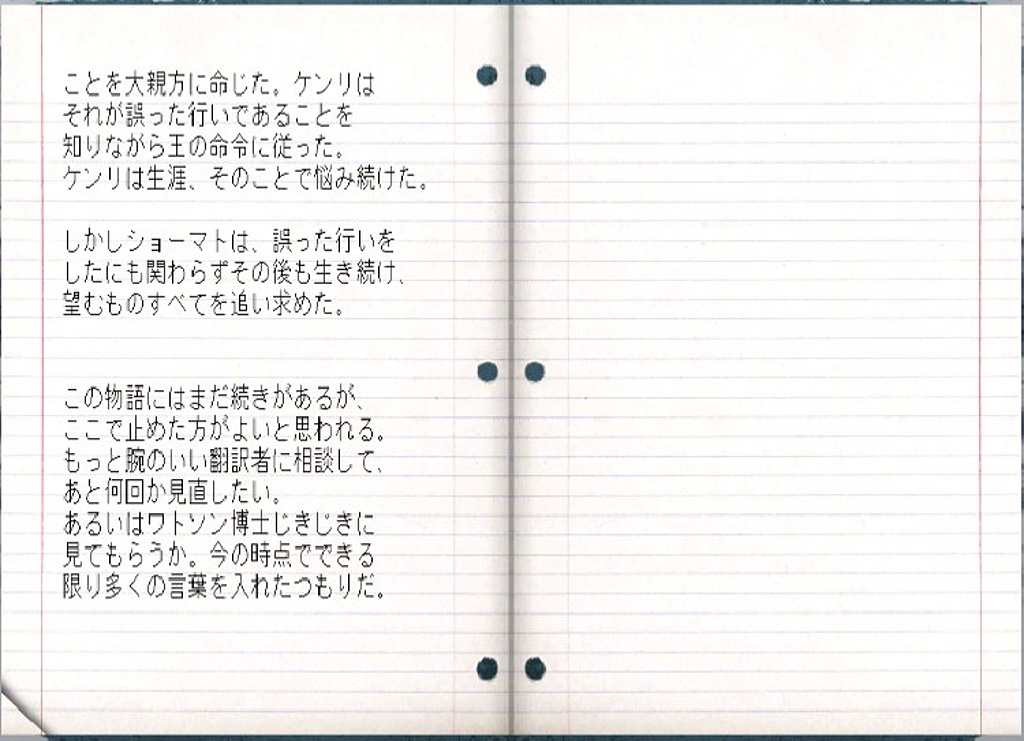 ことを大親方に命じた。ケンリは
それが誤った行いであることを
知りながら王の命令に従った。
ケンリは生涯、そのことで悩み続けた。
しかしショーマトは、誤った行いを
したにも関わらずその後も生き続け、
望むものすべてを追い求めた。
この物語にはまだ続きがあるが、
ここで止めた方がよいと思われる。
もっと腕のいい翻訳者に相談して、
あと何回か見直したい。
あるいはワトソン博士じきじきに
見てもらうか。今の時点でできる
限り多くの言葉を入れたつもりだ。